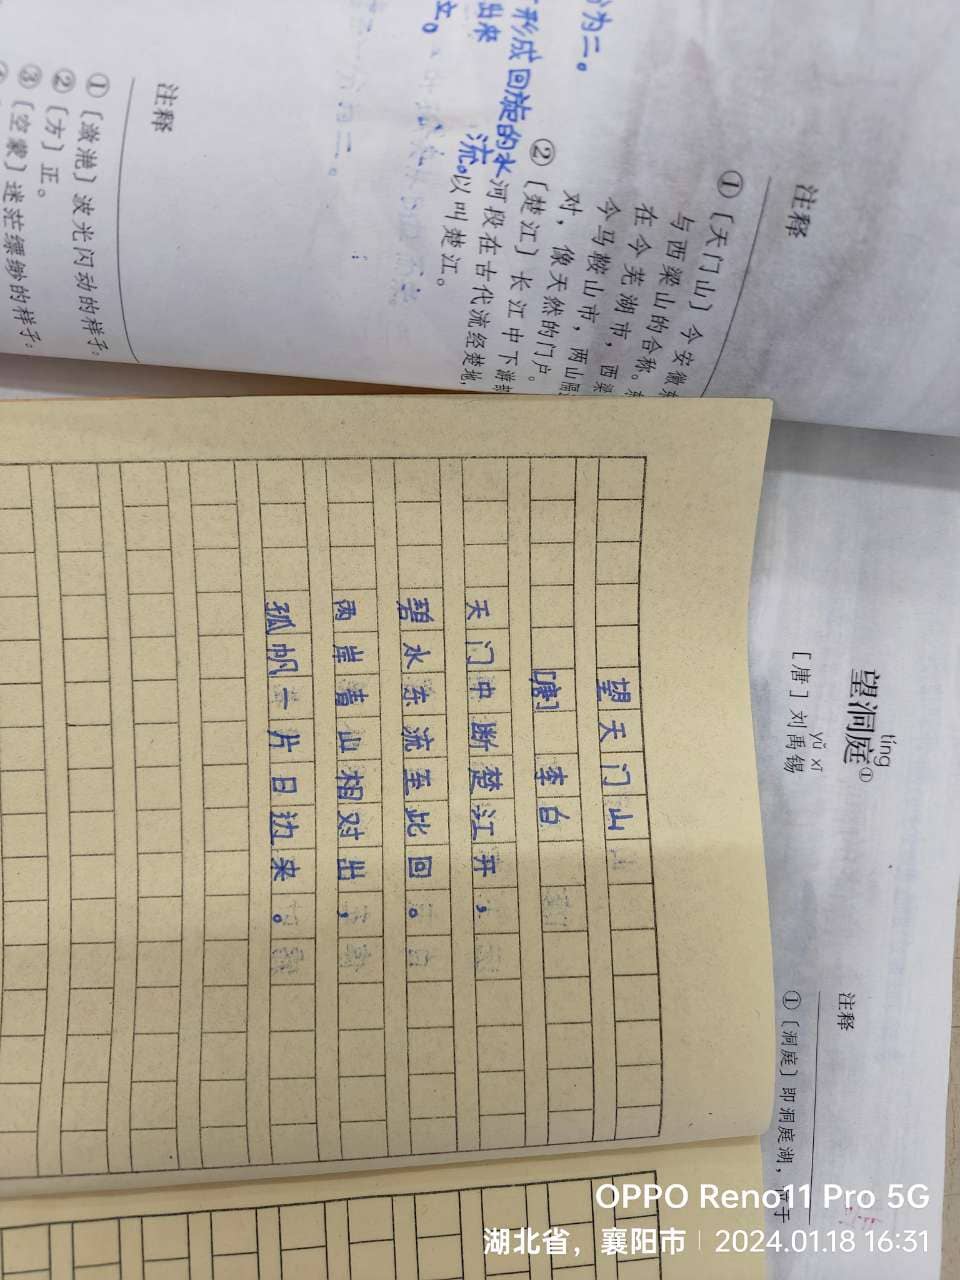 分为二。
形成回旋的水
流。
出来
文。
注释
①〔天门山〕今安徽
与西梁山的合称。东
在今芜湖市，西梁
今马鞍山市，两山隔
对，像天然的门户。
②〔楚江〕长江中下游部
河段在古代流经楚地，
以叫楚江。
注释
①〔潋滟〕波光闪动的样子。
②〔方〕正。
③〔空蒙〕迷茫缥缈的样子。
望天门山
[唐] 李白
天门中断楚江开，
碧水东流至此回。
两岸青山相对出，
孤帆一片日边来。
tíng
望洞庭①
yǔ xī
［唐］刘禹锡
注释
①〔洞庭〕即洞庭湖，位于
OPPO Reno11 Pro 5G
湖北省，襄阳市 | 2024.01.18 16:31